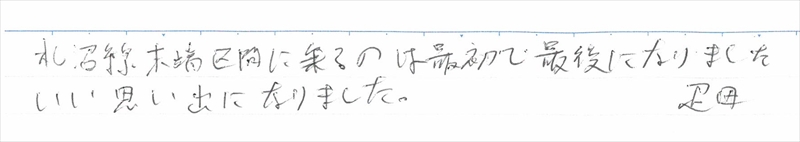 札沼線末端区間に乗るのは最初で最後になりました
いい思い出になりました。